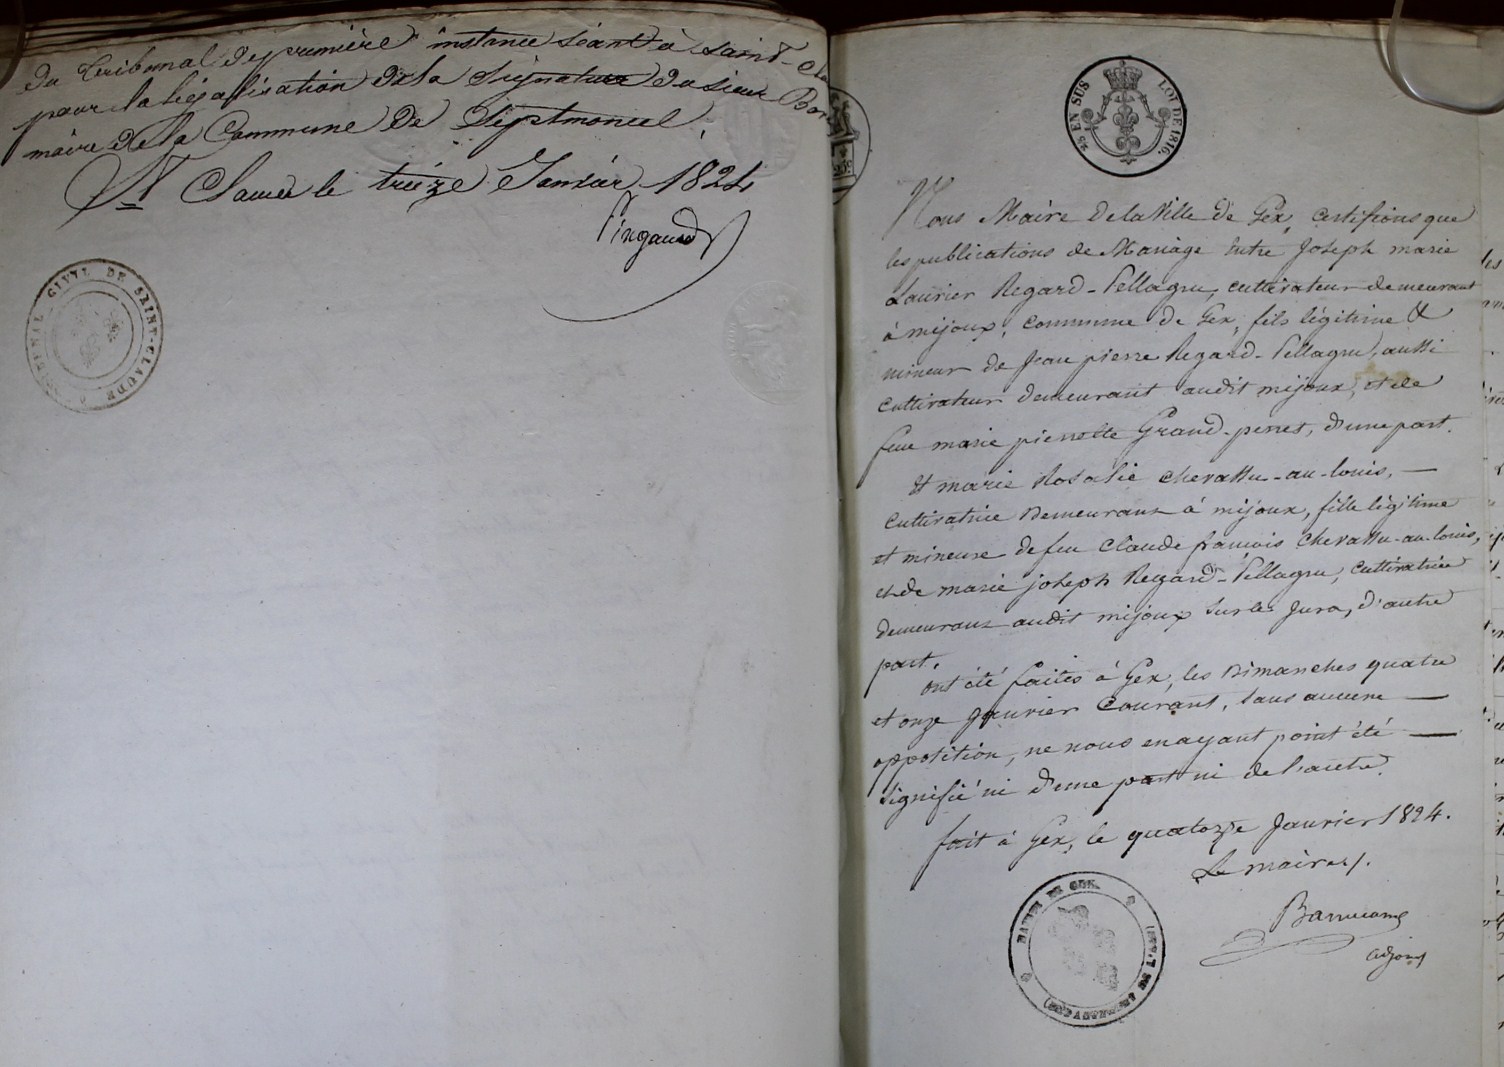 du Tribunal de première instance séant à Saint-Cla
pour la légalisation de la signature du sieur
maire de la Commune de Septmoncel,
St Claude le treize Janvier 1824
TRIBUNAL CIVIL DE SAINT-CLAUDE
25 EN SUS LOI DE 1816.
Nous Maire de la Ville de Gex, certifions que
les publications de Mariage entre Joseph marie
Laurier Regard-Pellagru, cultivateur demeurant
à mijoux, commune de Gex, fils légitime &
mineur de Jean pierre Regard-Pellagru, aussi
cultivateur demeurant audit mijoux, et de
feue marie pierrette Grand-perret, d'une part.
Et marie Rosalie chevassu-au-louis, —
cultivatrice Demeurant à mijoux, fille légitime
et mineure de feu Claude françois chevassu-au-louis,
et de marie joseph Regard-Pellagru, cultivatrice
demeurant audit mijoux sur les Jura, d'autre
part.
ont été faites à Gex, les Dimanches quatre
et onze janvier Courant, sans aucune —
opposition, ne nous en ayant point été —
signifié ni d'une part ni de l'autre.
fait à Gex, le quatorze Janvier 1824.
Le maire
adjoint
MAIRIE DE GEX.